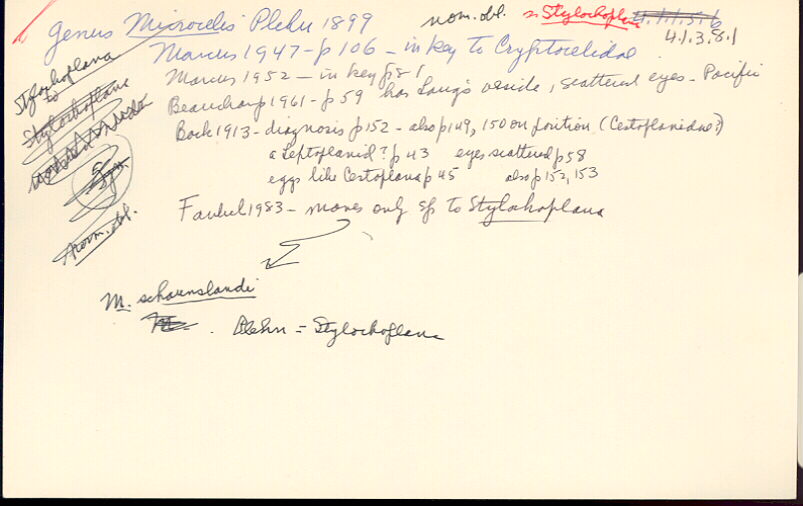 Genus Microcelis Plehn 1899 nom. dbl. = Stylochoplana 4.1.1.5.6
4.1.3.8.1
Marcus 1947 - p 106 - in key to Cryptocelidae
Marcus 1952 - in key p 81
Beauchamp 1961 - p 59 has Lang's vesicle, scattered eyes - Pacific
Bock 1913 - diagnosis p 152 - also p 149, 150 on position (Cestoplanidae?)
a Leptoplanid? p 43 eyes scattered p 58
eggs like Cestoplana p 45 also p 152, 153
Faubel 1983 - moves only sp to Stylochoplana
Stylochoplana
to
Stylochoplana
Syn
nom. dbl.
M. schauinslandi
Plehn = Stylochoplana